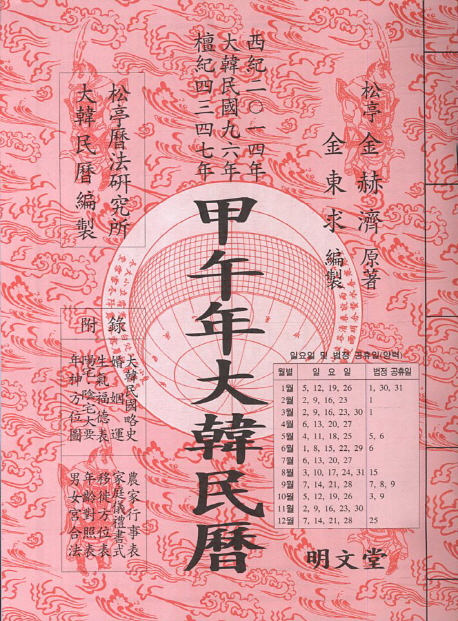 松亭 金赫濟 原著
金東求 編製
西紀二〇一四年
大韓民國九六年
檀紀四三四七年
甲午年大韓民曆
松亭曆法硏究所
大韓民曆編製
附錄
大韓民國略史
婚姻運
生氣福德表
陽宅陰宅大要
年神方位圖
農家行事表
家庭儀禮書式
移徙方位表
年齡對照表
男女宮合法
일요일 및 법정 공휴일(양력)
월별 일요일 법정 공휴일
1월 5, 12, 19, 26 1, 30, 31
2월 2, 9, 16, 23 1
3월 2, 9, 16, 23, 30 1
4월 6, 13, 20, 27
5월 4, 11, 18, 25 5, 6
6월 1, 8, 15, 22, 29 6
7월 6, 13, 20, 27
8월 3, 10, 17, 24, 31 15
9월 7, 14, 21, 28 7, 8, 9
10월 5, 12, 19, 26 3, 9
11월 2, 9, 16, 23, 30
12월 7, 14, 21, 28 25
明文堂